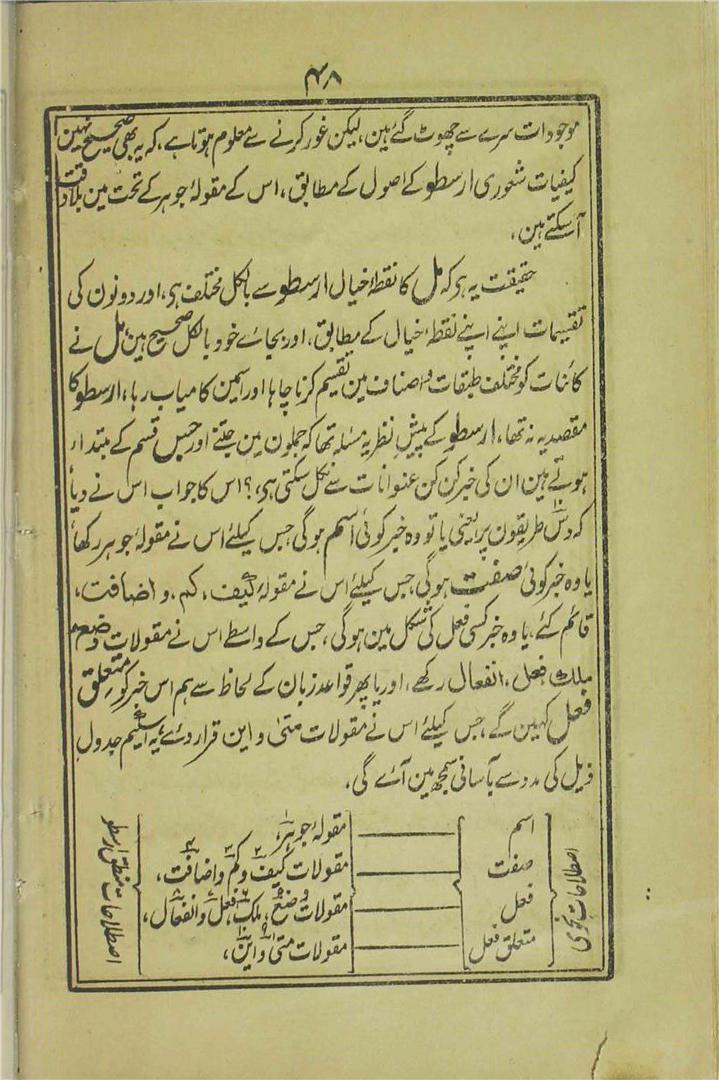 ۴۸
موجودات سرے سے چھوٹ گئے ہین، لیکن غور کرنے سے معلوم ہوتا ہے، کہ یہ بھی صحیح نہین
کیفیات شعوری ارسطو کے اصول کے مطابق، اس کے مقولۂ جوہر کے تحت مین بلا دقت
آ سکتے ہین،
حقیقت یہ ہی کہ مل کا نقطۂ خیال ارسطو سے بالکل مختلف ہی، اور دونون کی
تقسیمات اپنے اپنے نقطۂ خیال کے مطابق، اور بجاے خود بالکل صحیح ہین، مل نے
کائنات کو مختلف طبقات و اصناف مین تقسیم کرنا چاہا اور اسمین کامیاب رہا، ارسطو کا
مقصد یہ نہ تھا، ارسطو کے پیش نظر یہ مسئلہ تھا کہ جملون مین جتنے اور جس قسم کے مبتدا ر
ہوتے ہین ان کی خبر کن کن عنوانات سے نکل سکتی ہی،؟ اس کا جواب اس نے دیا
کہ دس طریقون پر، یعنی یا تو وہ خبر کوئی اسم ہوگی جس کیلئے اس نے مقولۂ جوہر رکھا
یا وہ خبر کوئی صفت ہوگی، جس کیلئے اس نے مقولۂ کیف، کم، و اضافت،
قائم کئے، یا وہ خبر کسی فعل کی شکل مین ہوگی، جس کے واسطے اس نے مقولات وضع
ملک فعل، انفعال رکھے، اور یا پھر قواعد زبان کے لحاظ سے ہم اس خبر کو متعلق
فعل کہین گے، جس کیلئے اس نے مقولات متیٰ و این قرار دئے، یہ اسکیم جدول
ذیل کی مدد سے بآسانی سمجھ مین آئے گی،
اصطلاحات نحوی
اسم مقولۂ جوہر، ۱
صفت مقولات کیف و کم و اضافت، ۲ ۳ ۴
فعل مقولات وضع، ملک، فعل و انفعال، ۵ ۶ ۷ ۸
متعلق فعل مقولات متیٰ و این، ۹ ۱۰
اصطلاحات منطق ارسطو